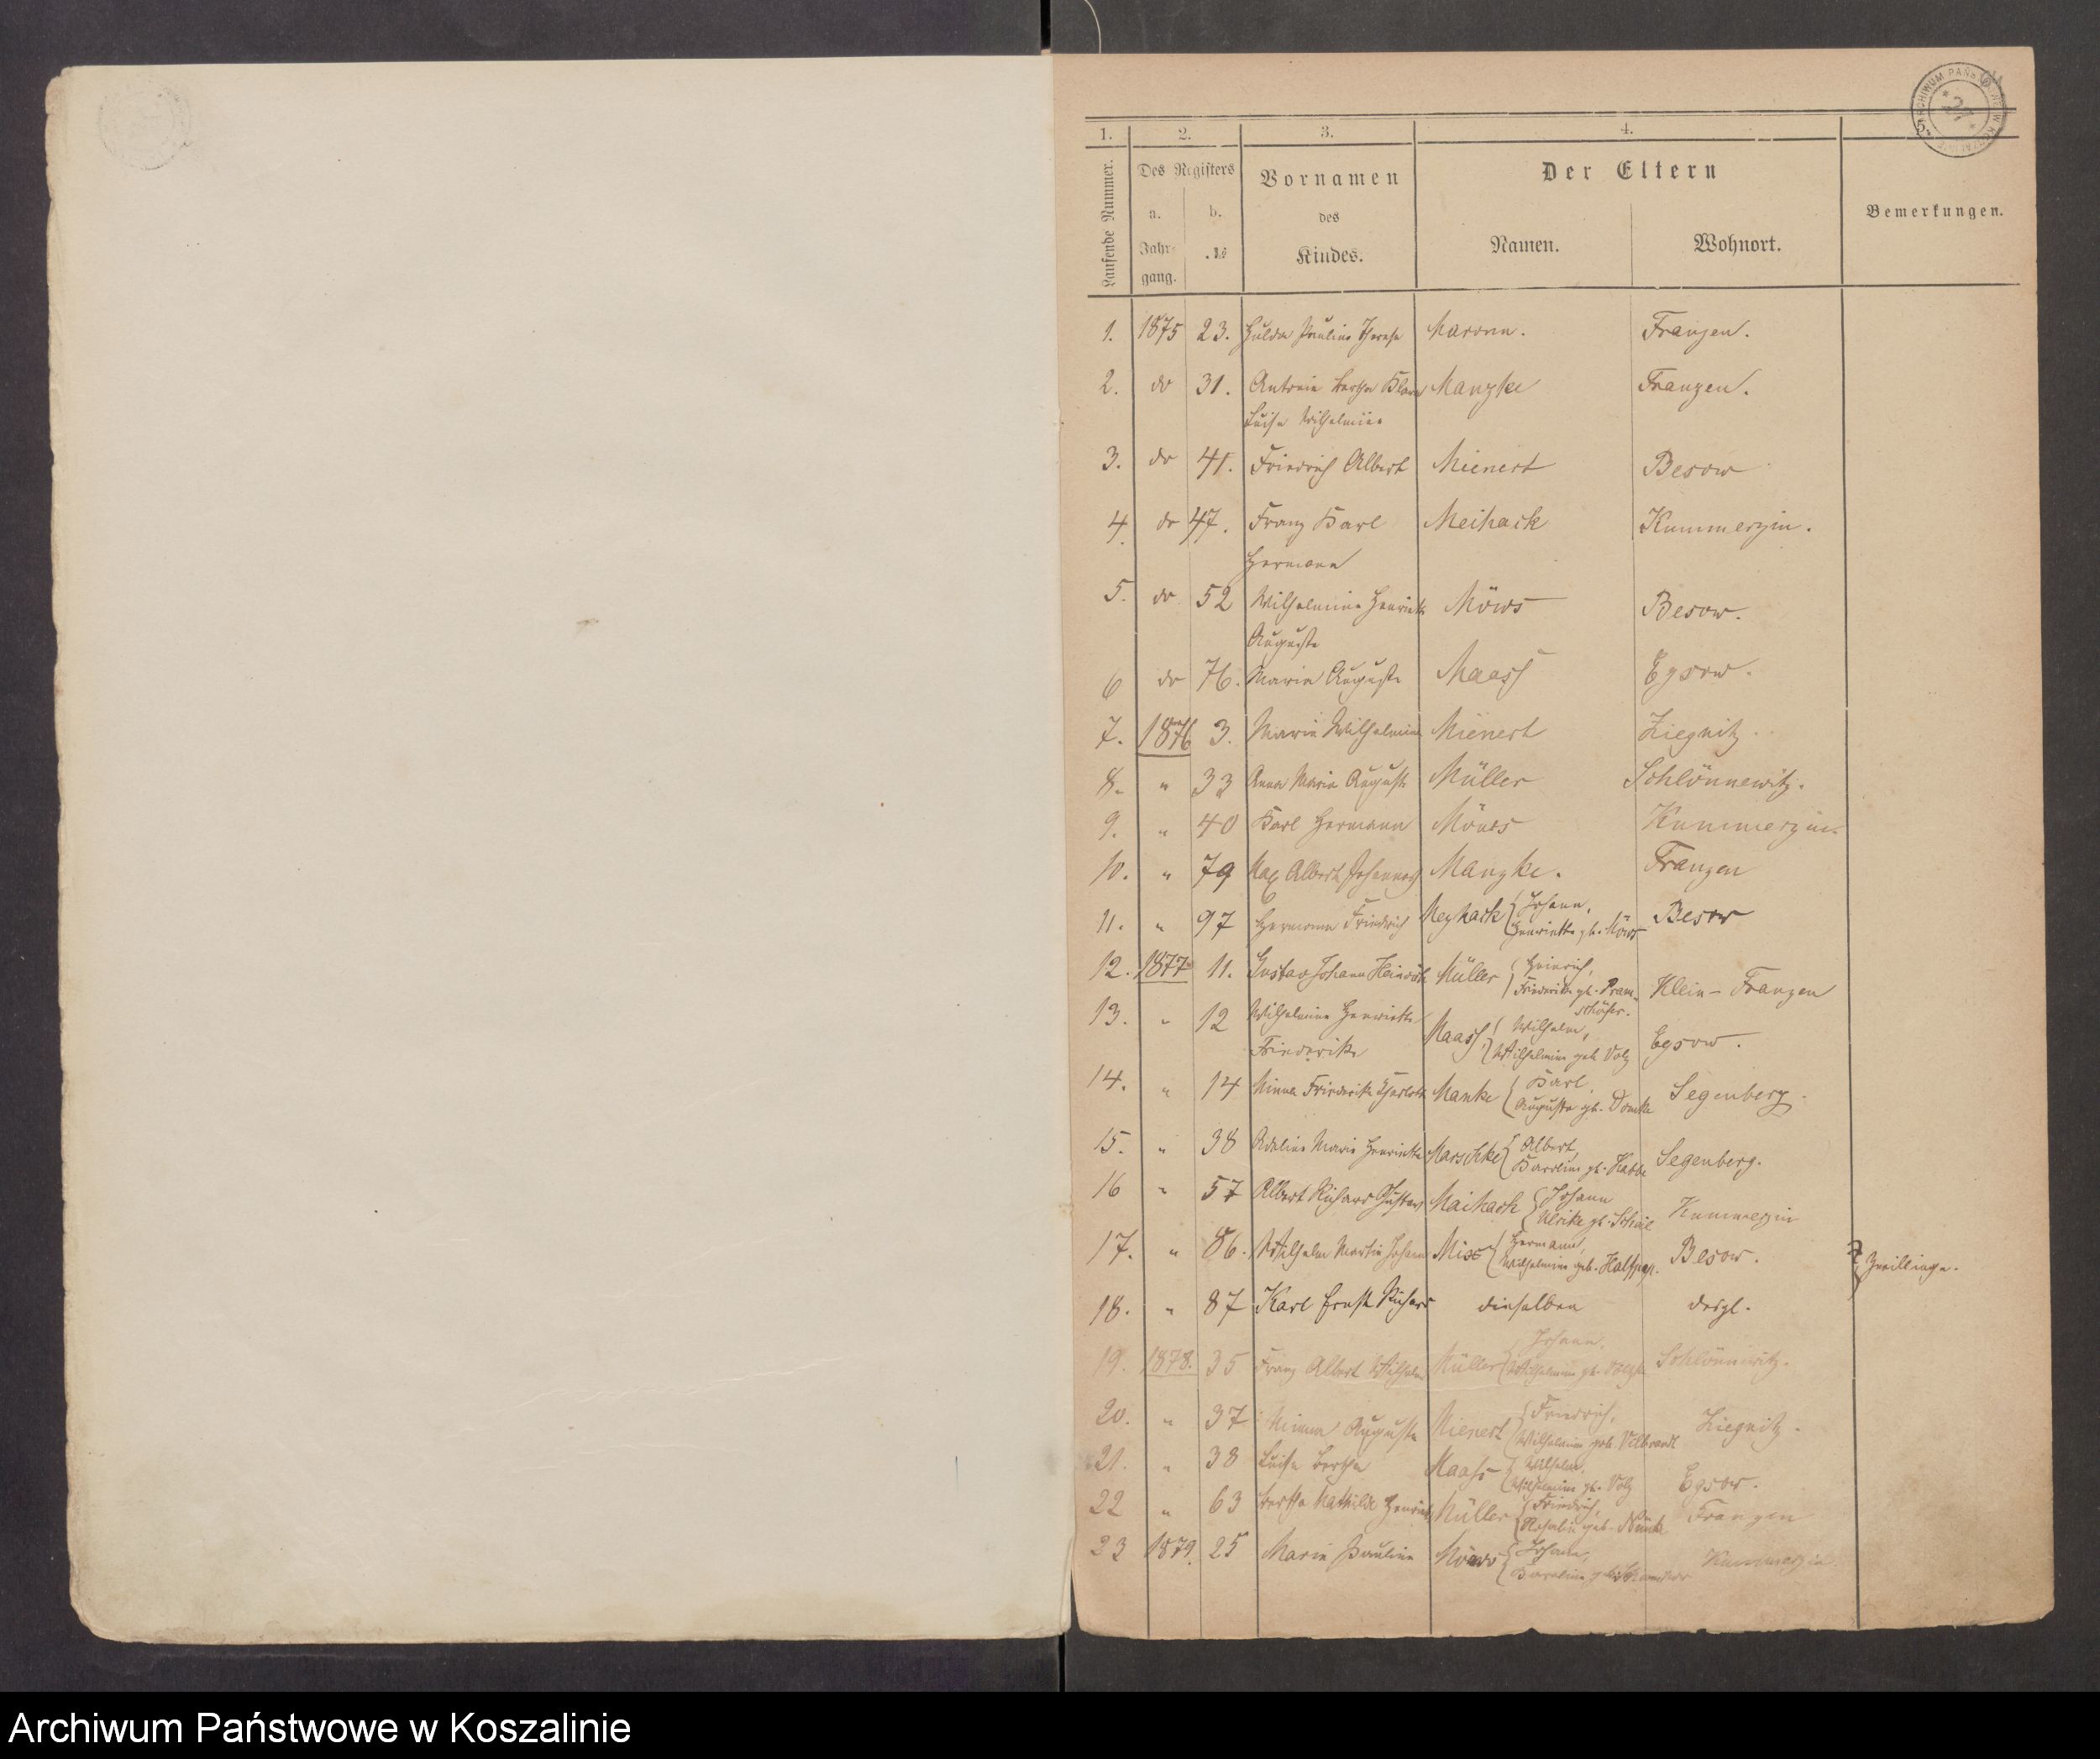 ARCHIWUM PAŃSTWOWE W KOSZALINIE
1. 2. 3. 4.
Laufende Nummer. Des Registers Vornamen des Kindes. Der Eltern Bemerkungen.
a. Jahrgang. b. № Namen. Wohnort.
1. 1875 23. Hulda Pauline Therese Maronn. Franzen.
2. do 31. Antonie Bertha Klara Manzke Franzen.
Luise Wilhelmine
3. do 41. Friedrich Albert Mienert Besow
4. do 47. Franz Karl Meihack Kummerzin.
Hermann
5. do 52 Wilhelmine Henriette Möws Besow.
Auguste
6 do 76. Marie Auguste Maass Egsow.
7. 1876 3. Marie Wilhelmine Mienert Ziegnitz.
8. " 33 Anna Marie Auguste Müller Schlönnewitz.
9. " 40 Karl Hermann Möws Kummerzin.
10. " 79 Max Albert Johannes Manzke. Franzen
11. " 97 Hermann Friedrich Meyhack Johann, Besow
Henriette gb. Möws
12. 1877 11. Gustav Johann Heinrich Müller Heinrich, Klein-Franzen
Friederike gb. Pramschüfer.
13. " 12 Wilhelmine Henriette Maass, Wilhelm, Egsow.
Friederike Wilhelmine geb. Volz
14. " 14 Minna Friederike Charlotte Manke Karl, Segenberg.
Auguste gb. Domke
15. " 38 Adeline Marie Henriette Marschke Albert, Segenberg.
Karoline gb. Habbe
16 " 57 Albert Richard Gustav Maihack Johann Kummerzin
Ulrike gb.
17. " 86. Wilhelm Martin Johann Mix Hermann, Besow. Zwillinge.
Wilhelmine geb.
18. " 87 Karl Ernst Richard dieselben desgl.
19. 1878. 35 Franz Albert Wilhelm Müller Johann, Schlönnwitz.
Wilhelmine gb.
20. " 37 Minna Auguste Mienert Friedrich, Ziegnitz.
Wilhelmine geb. Vilbrandt
21. " 38 Luise Bertha Maass Wilhelm, Egsow.
Wilhelmine gb. Volz
22 " 63 Bertha Mathilde Henriette Müller Friedrich, Franzen
Rosalie geb.
23 1879. 25 Marie Pauline Möws Johann, Kummerzin
Karoline
Archiwum Państwowe w Koszalinie